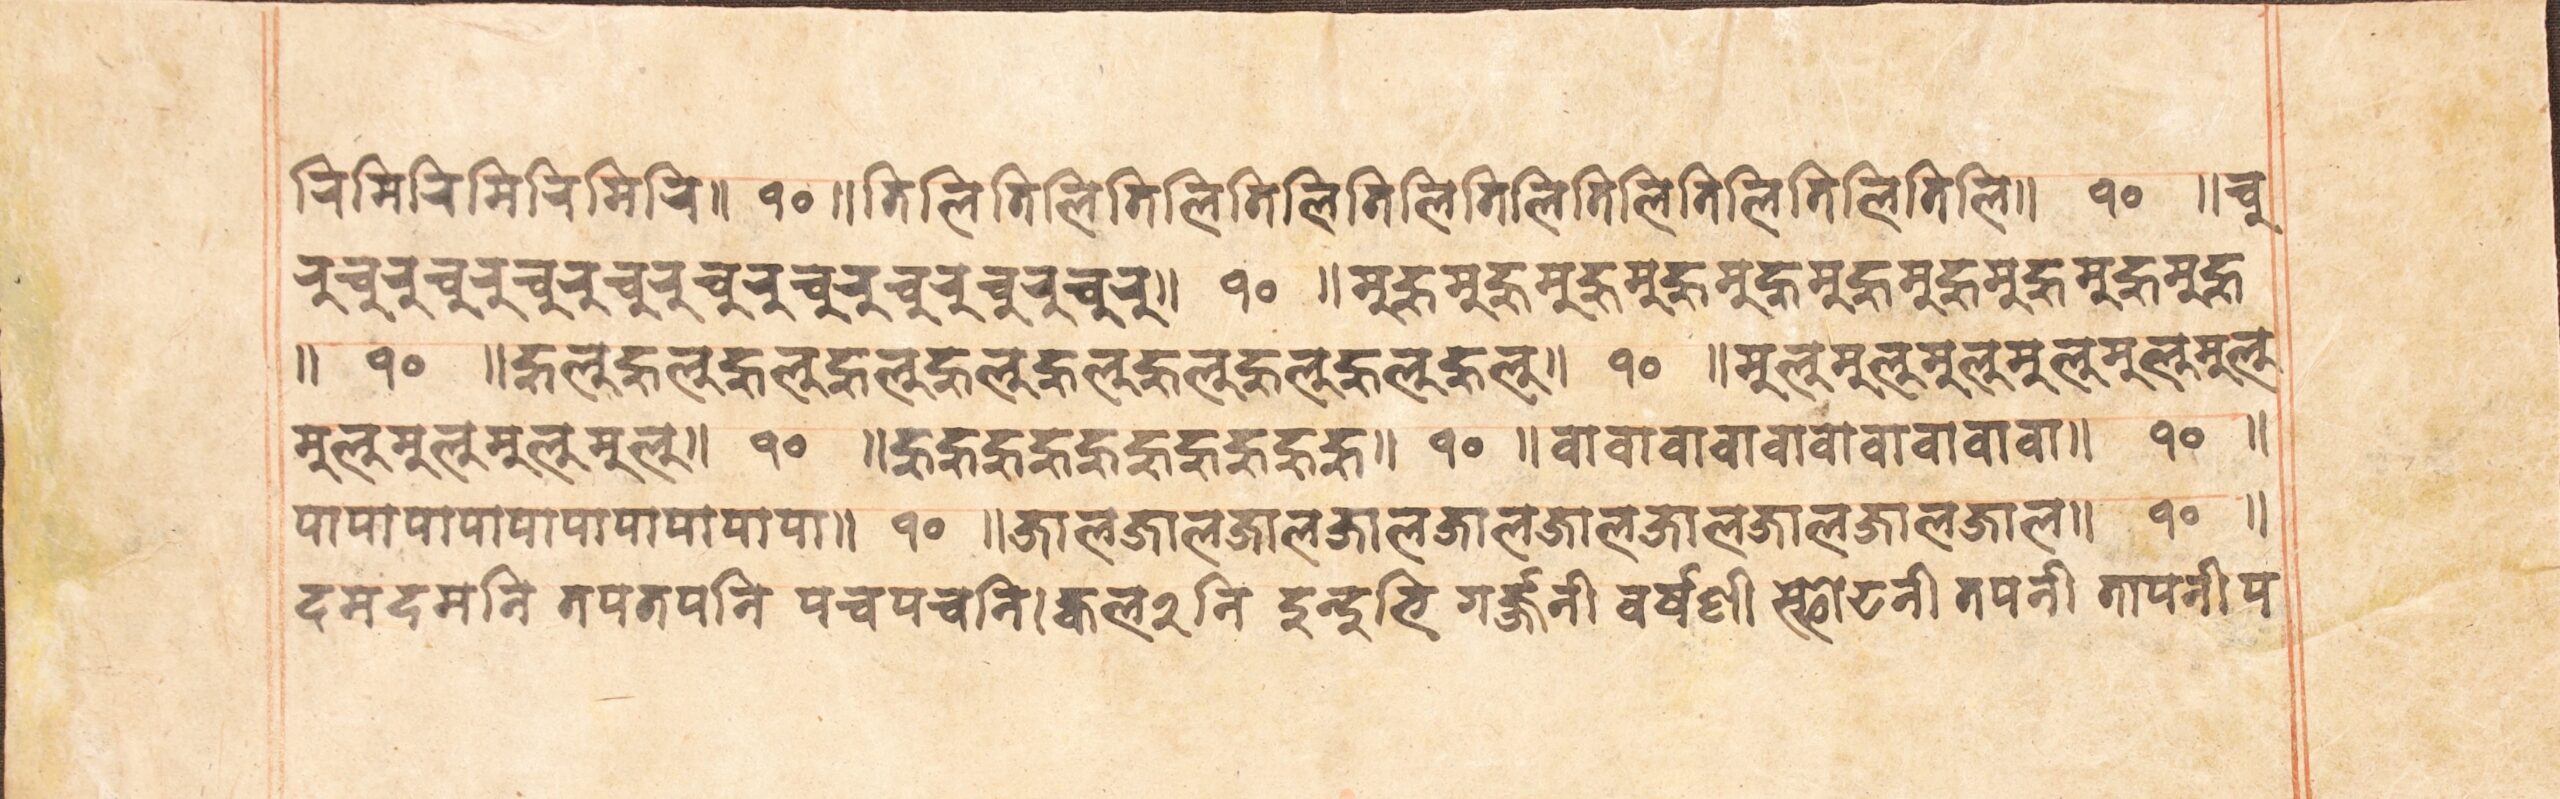 रिमिरिमिरिमिरि॥ १० ॥तिलितिलितिलितिलितिलितिलितिलितिलितिलितिलि॥ १० ॥चु
रुचुरुचुरुचुरुचुरुचुरुचुरुचुरुचुरुचुरु॥ १० ॥मुहुमुहुमुहुमुहुमुहुमुहुमुहुमुहुमुहुमुहु
॥ १० ॥हुलुहुलुहुलुहुलुहुलुहुलुहुलुहुलुहुलुहुलु॥ १० ॥मुलुमुलुमुलुमुलुमुलुमुलु
मुलुमुलुमुलुमुलु॥ १० ॥हुहुहुहुहुहुहुहुहुहु॥ १० ॥वावावावावावावावावावा॥ १० ॥
पापापापापापापापापापा॥ १० ॥जालजालजालजालजालजालजालजालजालजाल॥ १० ॥
दमदमनि तपतपनि पचपचनि।ज्वल२नि दुन्दुहि गर्ज्जनी वर्षणी स्फोटनी तपनी तापनी प